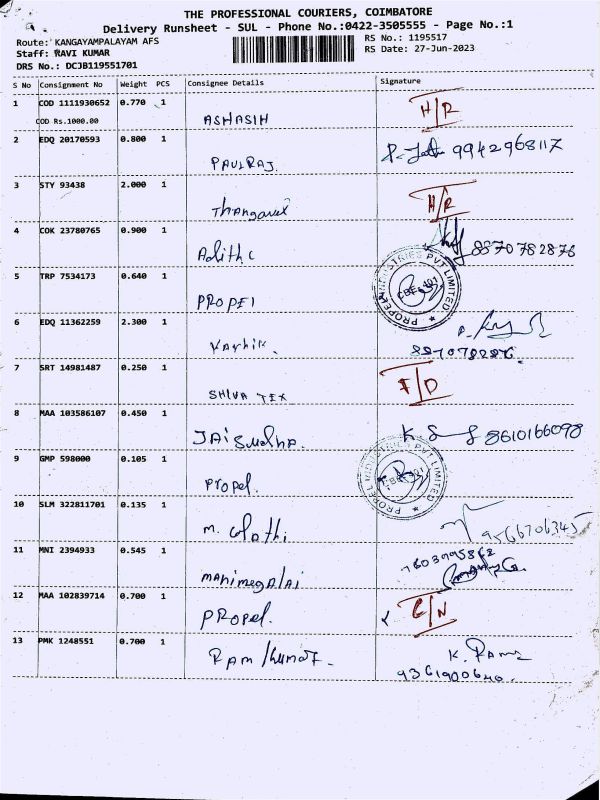 THE PROFESSIONAL COURIERS, COIMBATORE
Delivery Runsheet - SUL - Phone No.:0422-3505555 - Page No.:1
Route: KANGAYAMPALAYAM AFS
RS No.: 1195517
Staff: RAVI KUMAR
RS Date: 27-Jun-2023
DRS No.: DCJB119551701
S No Consignment No Weight PCS Consignee Details Signature
1 COD 1111930652 0.770 1 H/R
COD Rs.1000.00 ASHASIH
2 EDQ 20170593 0.800 1 9942968117
PAULRAJ
3 STY 93438 2.000 1 H/R
Thangavel
4 COK 23780765 0.900 1 8870782876
Adithc
5 TRP 7534173 0.640 1 PROPEL INDUSTRIES PVT LIMITED
PROPEL
6 EDQ 11362259 2.300 1
Karthik.
7 SRT 14981487 0.250 1
SHIVA TEX
8 MAA 103586107 0.450 1 8610166098
JAISUDHA.
9 GMP 598000 0.105 1 PROPEL INDUSTRIES PVT LIMITED
Propel.
10 SLM 322811701 0.135 1 9566706345
M.
11 MNI 2394933 0.545 1
Manimegalai
12 MAA 102839714 0.700 1 C/N
PROpel.
13 PMK 1248551 0.700 1 K. Rama
RAM Kumar.